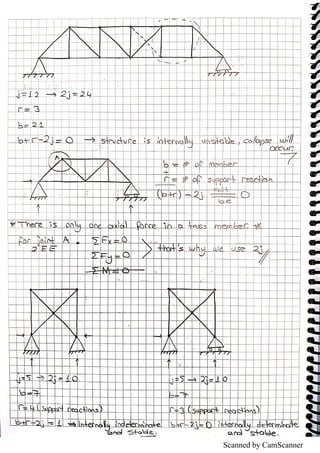 j=12 → 2j=24
r=3
b=21
b+r-2j=0 → structure is internally unstable, colapse will occur.
A
b = # of member
+
r = # of support reaction
(b+r)-2j must be 0
* There is only one axial force in a truss member. *
for joint A. ΣFx=0
2 EE ΣFy=0 that's why we use 2j
ΣM=0
j=5 → 2j=10
b=7
r=4 (support reactions)
b+r-2j=1 → internally indeterminate and stable.
j=5 → 2j=10
b=7
r=3 (support reactions)
b+r-2j=0 internally determinate and stable.
Scanned by CamScanner